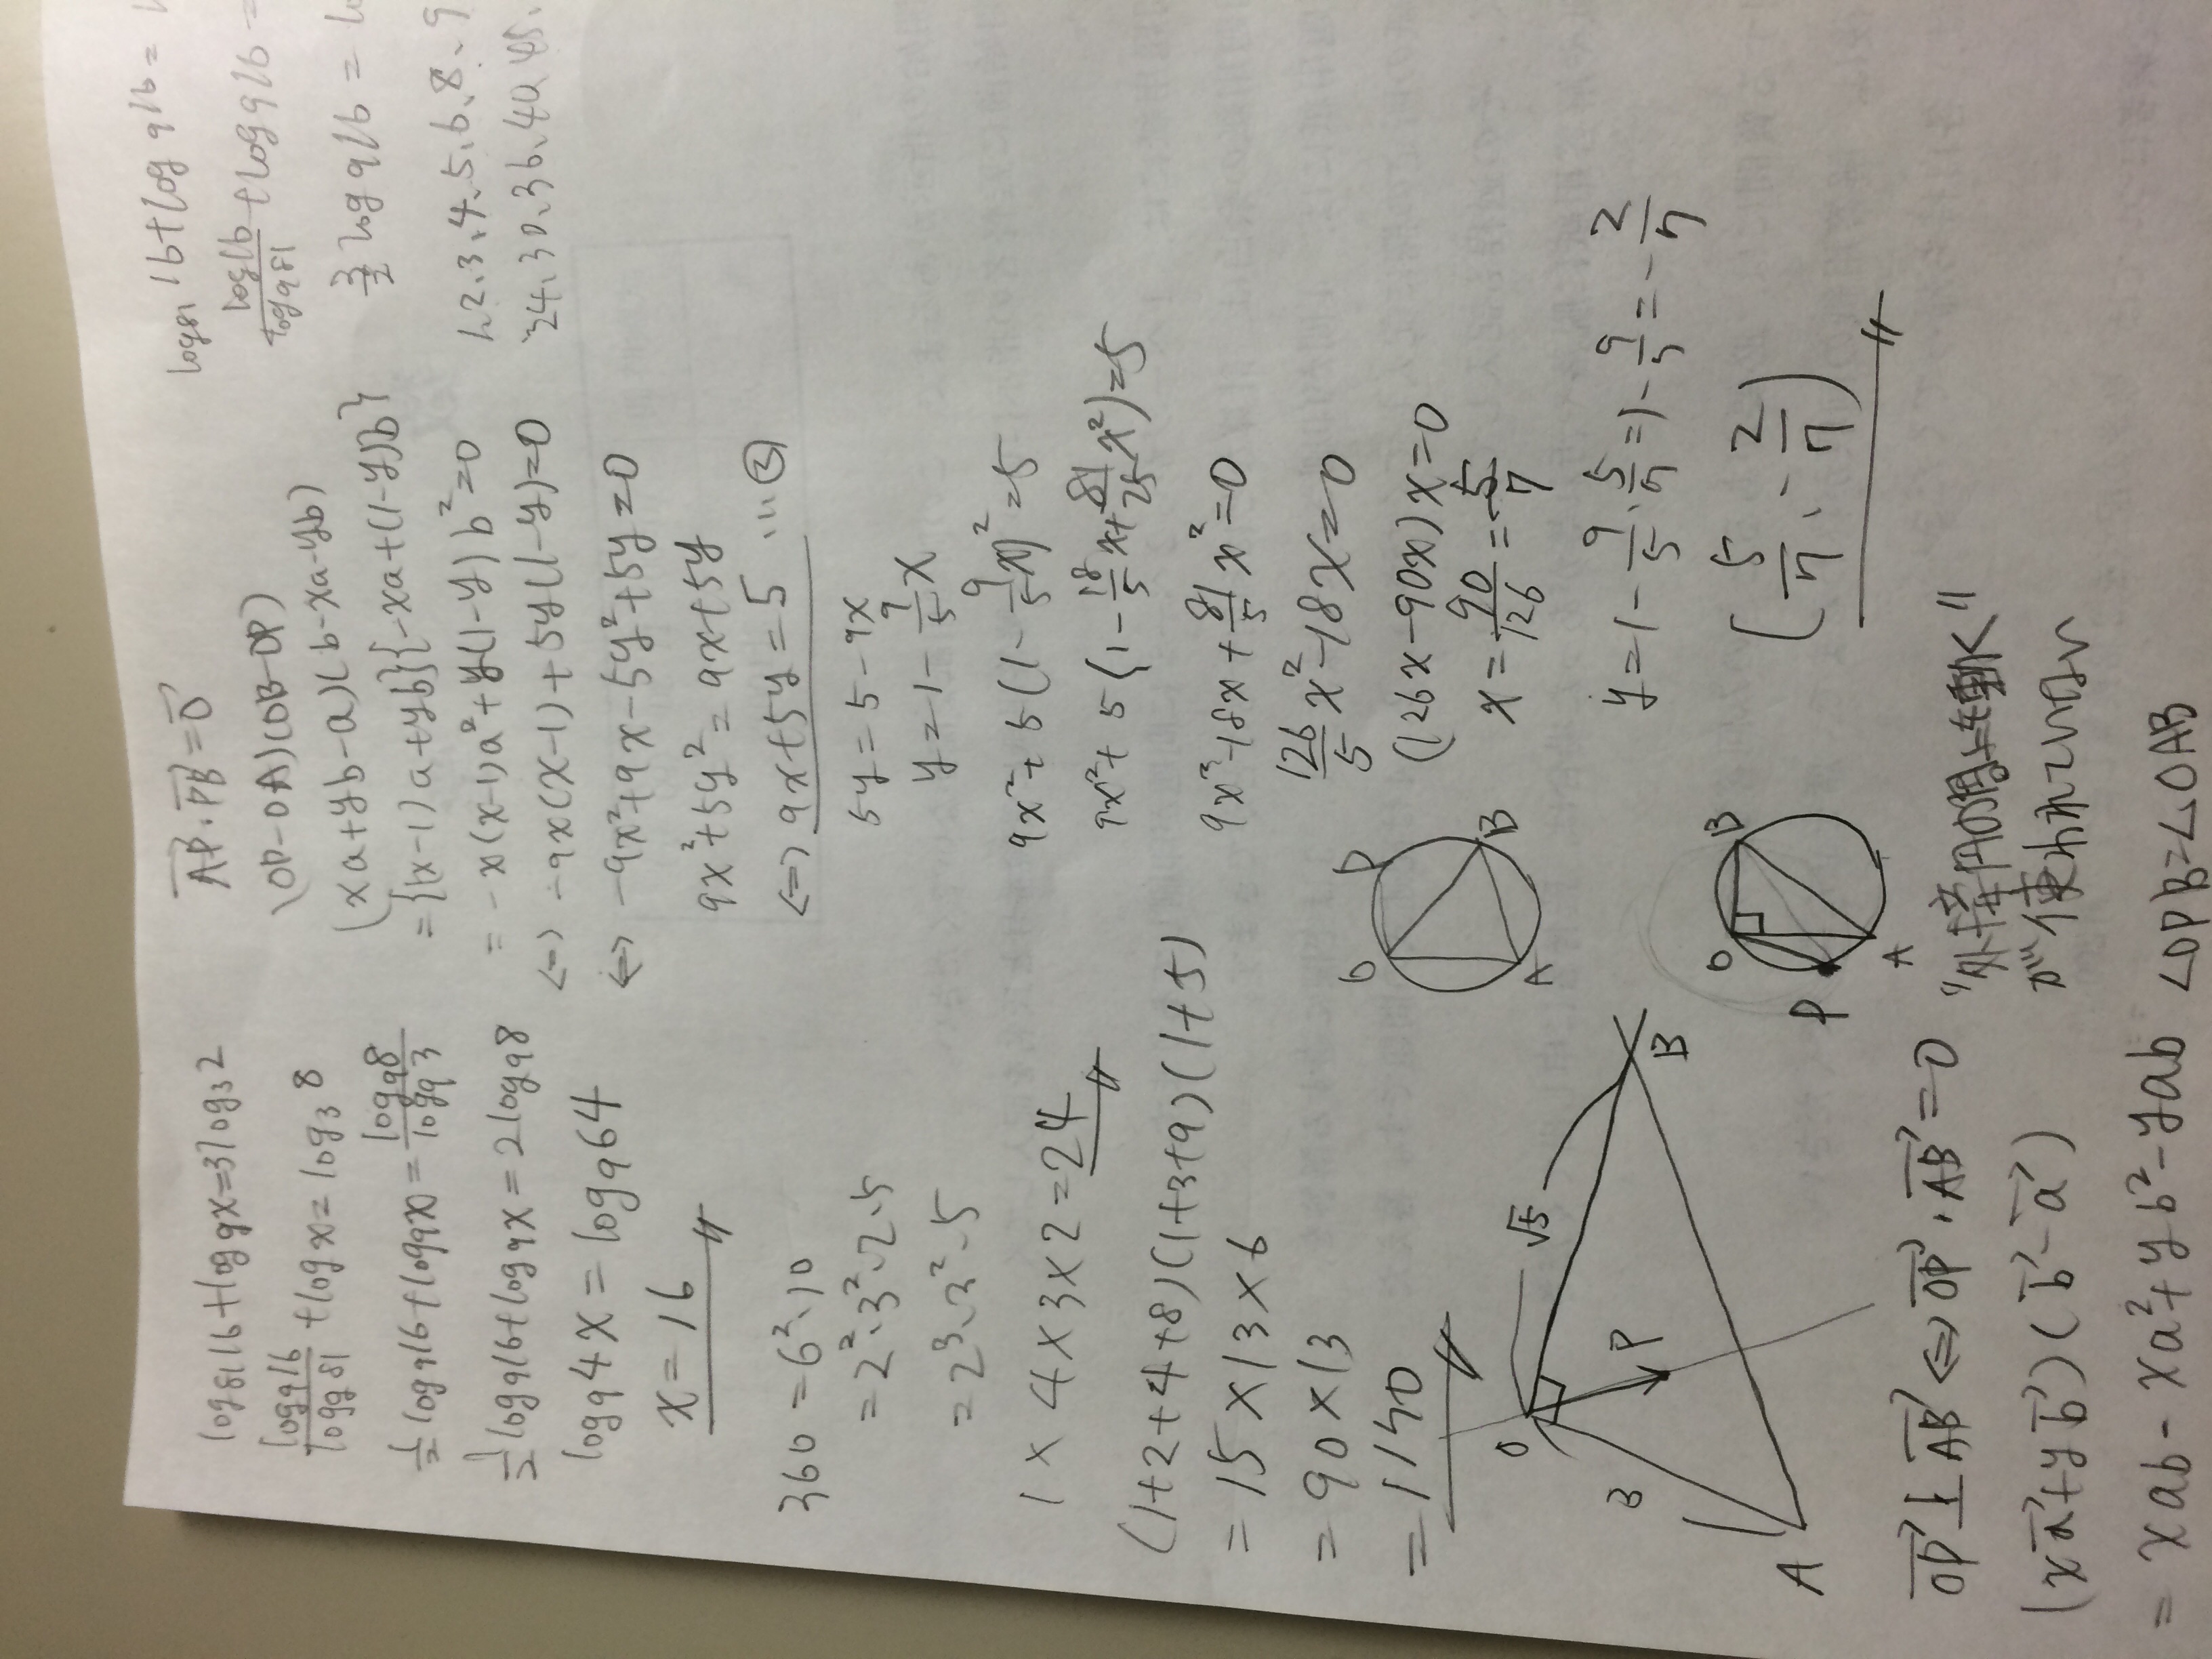 log₈₁16+log₉x=3log₃2
log₉16/log₉81+log₉x=log₃8
1/2log₉16+log₉x=log₉8/log₉3
1/2log₉16+log₉x=2log₉8
log₉4x=log₉64
x=16
360=6²·10
=2²·3²·2·5
=2³·3²·5
1×4×3×2=24
(1+2+4+8)(1+3+9)(1+5)
=15×13×6
=90×13
=1140
O
√5
3
P
A
B
OP⊥AB⇔OP·AB=0
(xa+yb)(b-a)
=xab-xa²+yb²-yab
AP·PB=0
(OP-OA)(OB-OP)
(xa+yb-a)(b-xa-yb)
={(x-1)a+yb}{-xa+(1-y)b}
=-x(x-1)a²+y(1-y)b²=0
⇔-9x(x-1)+5y(1-y)=0
⇔-9x²+9x-5y²+5y=0
9x²+5y²=9x+5y
⇔9x+5y=5…②
5y=5-9x
y=1-9/5x
9x²+5(1-9/5x)²=5
9x²+5(1-18/5x+81/25x²)=5
9x²-18x+81/5x²=0
126/5x²-18x=0
(126x-90x)x=0
x=90/126=5/7
y=1-9/5·5/7=1-9/5=-2/7
(5/7、-2/7)
O
P
B
A
O
B
P
A
が使われていない
∠OPB=∠OAB
log₈₁16+log₉16=
log16/log₉81+log₉16=
3/2log₉16=
1.2.3.4.5.6.8.9
24.30.36.40.45.